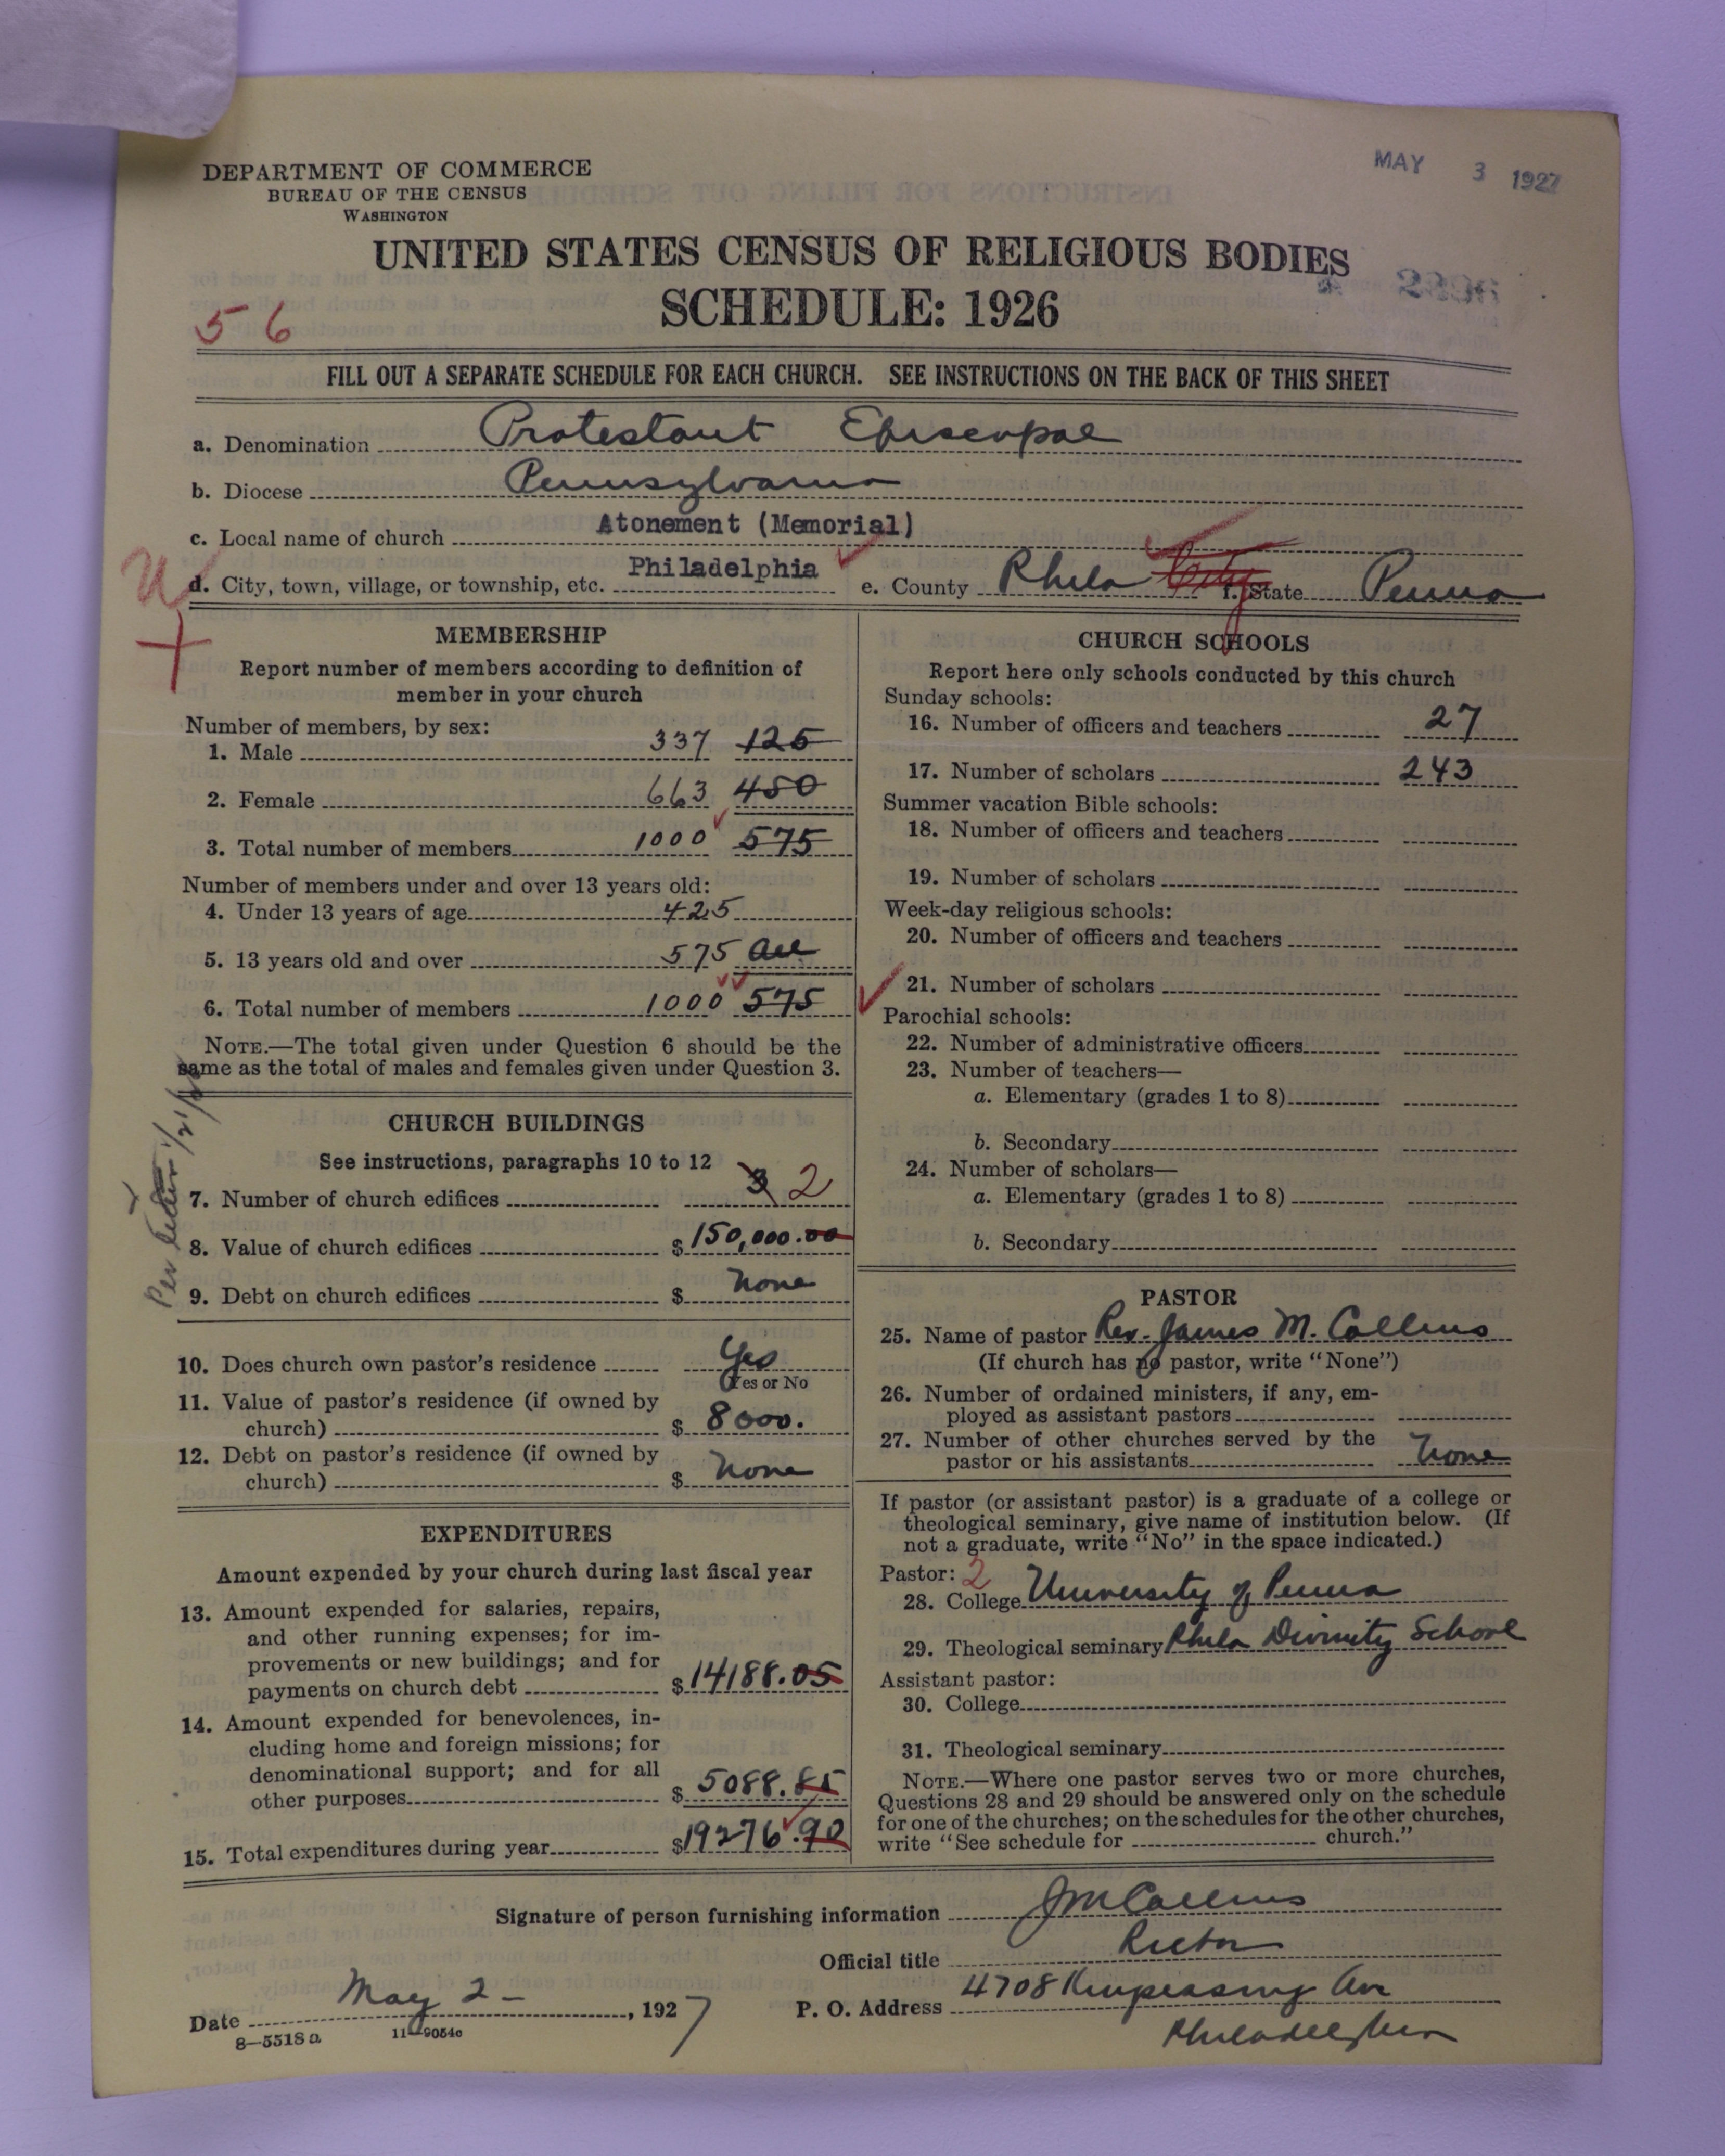 MAY 3 1927
DEPARTMENT OF COMMERCE
BUREAU OF THE CENSUS
WASHINGTON
UNITED STATES CENSUS OF RELIGIOUS BODIES
SCHEDULE: 1926
56
FILL OUT A SEPARATE SCHEDULE FOR EACH CHURCH. SEE INSTRUCTIONS ON THE BACK OF THIS SHEET
a. Denomination Protestant Episcopal
b. Diocese Pennsylvania
c. Local name of church Atonement (Memorial)
d. City, town, village, or township, etc. Philadelphia e. County Phila City f. State Penna
MEMBERSHIP
Report number of members according to definition of
member in your church
Number of members, by sex:
1. Male 337 125
2. Female 663 450
3. Total number of members 1000 575
Number of members under and over 13 years old:
4. Under 13 years of age 425
5. 13 years old and over 575 all
6. Total number of members 1000 575
NOTE.—The total given under Question 6 should be the
same as the total of males and females given under Question 3.
Per letter
CHURCH BUILDINGS
See instructions, paragraphs 10 to 12
7. Number of church edifices 3 2
8. Value of church edifices $ 150,000.00
9. Debt on church edifices $ None
10. Does church own pastor's residence Yes
Yes or No
11. Value of pastor's residence (if owned by
church) $ 8000.
12. Debt on pastor's residence (if owned by
church) $ None
EXPENDITURES
Amount expended by your church during last fiscal year
13. Amount expended for salaries, repairs,
and other running expenses; for im-
provements or new buildings; and for
payments on church debt $ 14188.05
14. Amount expended for benevolences, in-
cluding home and foreign missions; for
denominational support; and for all
other purposes $ 5088.85
15. Total expenditures during year $ 19276.90
CHURCH SCHOOLS
Report here only schools conducted by this church
Sunday schools:
16. Number of officers and teachers 27
17. Number of scholars 243
Summer vacation Bible schools:
18. Number of officers and teachers
19. Number of scholars
Week-day religious schools:
20. Number of officers and teachers
21. Number of scholars
Parochial schools:
22. Number of administrative officers
23. Number of teachers—
a. Elementary (grades 1 to 8)
b. Secondary
24. Number of scholars—
a. Elementary (grades 1 to 8)
b. Secondary
PASTOR
25. Name of pastor Rev. James M. Collins
(If church has no pastor, write "None")
26. Number of ordained ministers, if any, em-
ployed as assistant pastors
27. Number of other churches served by the
pastor or his assistants None
If pastor (or assistant pastor) is a graduate of a college or
theological seminary, give name of institution below. (If
not a graduate, write "No" in the space indicated.)
Pastor: 2
28. College University of Penna
29. Theological seminary Phila Divinity School
Assistant pastor:
30. College
31. Theological seminary
NOTE.—Where one pastor serves two or more churches,
Questions 28 and 29 should be answered only on the schedule
for one of the churches; on the schedules for the other churches,
write "See schedule for church."
Signature of person furnishing information J M Collins
Official title Rector
Date May 2 - , 1927 P. O. Address 4708 Kingsessing Ave
Philadelphia
8—5518 a 11—9054c